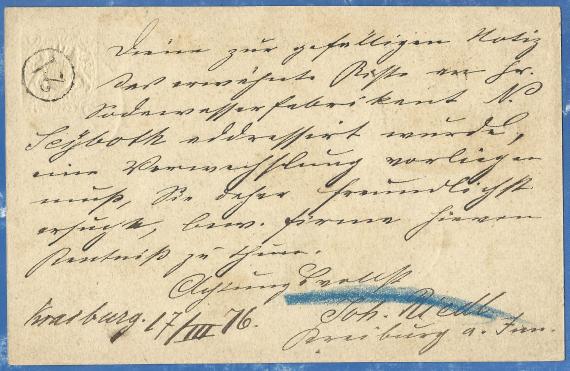 Diene zur gefälligen Notiz
das erwähnte Kiste an Hr.
Sodawasserfabrikant N.
Seyboth addressirt wurde,
eine Verwechslung vorliegen
muß, Sie daher freundlichst
ersucht, bew. Firma hievon
Kentniß zu thun.
Achtungsvollst
Kraiburg. 17/III 76.
Joh. Riedl
Kraiburg a. Inn.